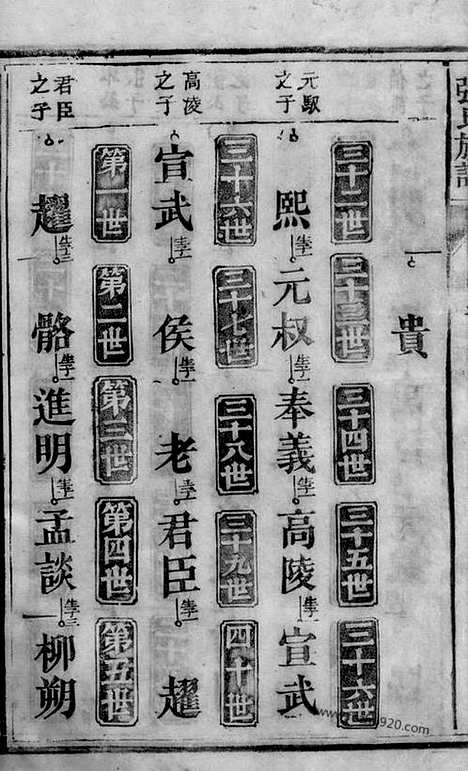 張氏族譜
貴
三十二世 三十三世 三十四世 三十五世 三十六世
元馭之子 熙 生一 元叔 生一 奉義 生一 高陵 生一 宣武
三十六世 三十七世 三十八世 三十九世 四十世
高陵之子 宣武 生一 侯 生一 老 生一 君臣 生一 趯
第一世 第二世 第三世 第四世 第五世
君臣之子 趯 生二 骼 生一 進明 生一 孟談 生三 柳朔